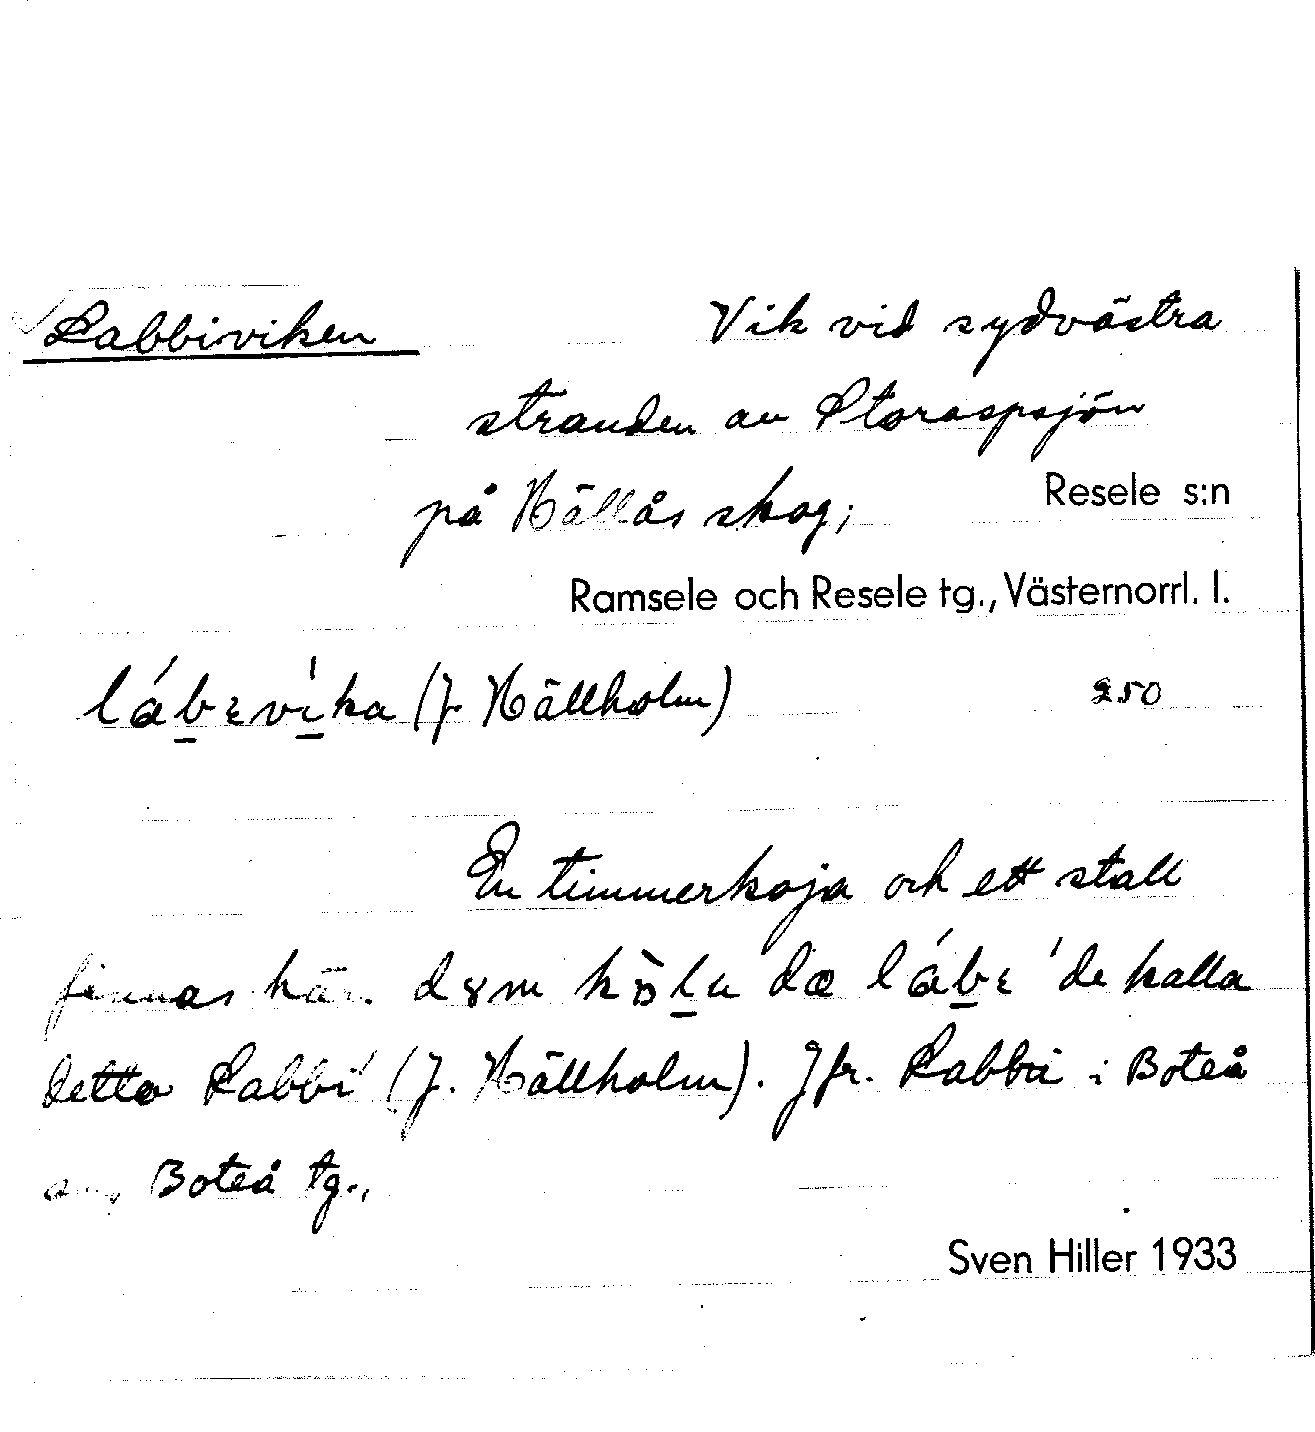 Labbiviken Vik vid sydvästra
stranden av Storaspsjön
på Hällås skog;
Resele s:n
Ramsele och Resele tg., Västernorrl. l.
lábɛvìka (J. Hällholm) 250
En timmerkoja och ett stall
finnas här. dɷm kɔ̀lu dæ lábɛ 'de kalla
detta Labbi' (J. Hällholm). Jfr. Labbi i Boteå
sn, Boteå tg.,
Sven Hiller 1933